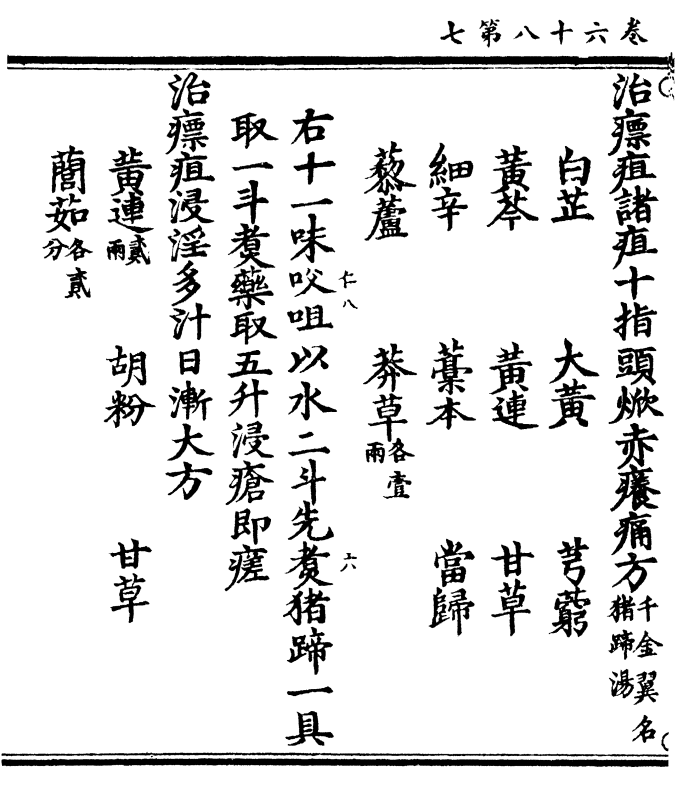 卷六十八第七
治瘭疽諸疽十指頭焮赤癢痛方千金翼名猪蹄湯
白芷 大黃 芎藭
黃芩 黃連 甘草
細辛 藁本 當歸
藜蘆 莽草各壹兩
右十一味㕮咀以水二斗先煑猪蹄一具
仁八
六
取一斗煑藥取五升浸瘡即瘥
治瘭疽浸淫多汁日漸大方
黃連貳兩 胡粉 甘草
䕡茹各貳分